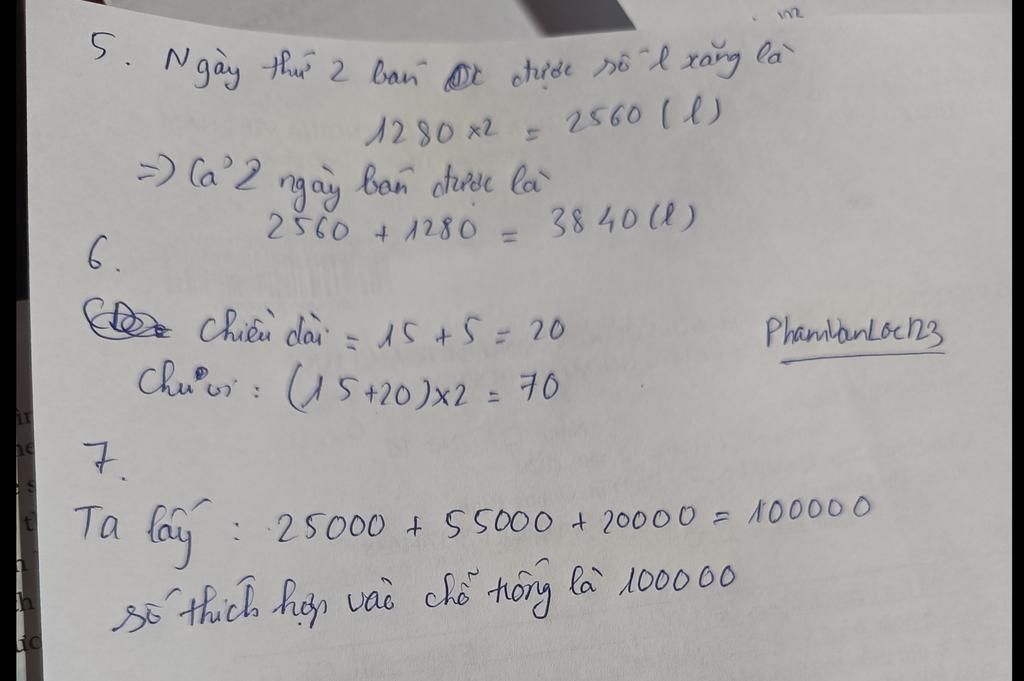 5. Ngày thứ 2 bán được số l xăng là
1280 x2 = 2560 (l)
=> Cả 2 ngày bán được là
2560 + 1280 = 3840 (l)
6.
Chiều dài = 15 + 5 = 20
Chu vi : (15+20)x2 = 70
PhamVanLoc123
7.
Ta lấy : 25000 + 55000 + 20000 = 100000
số thích hợp vào chỗ trống là 100000